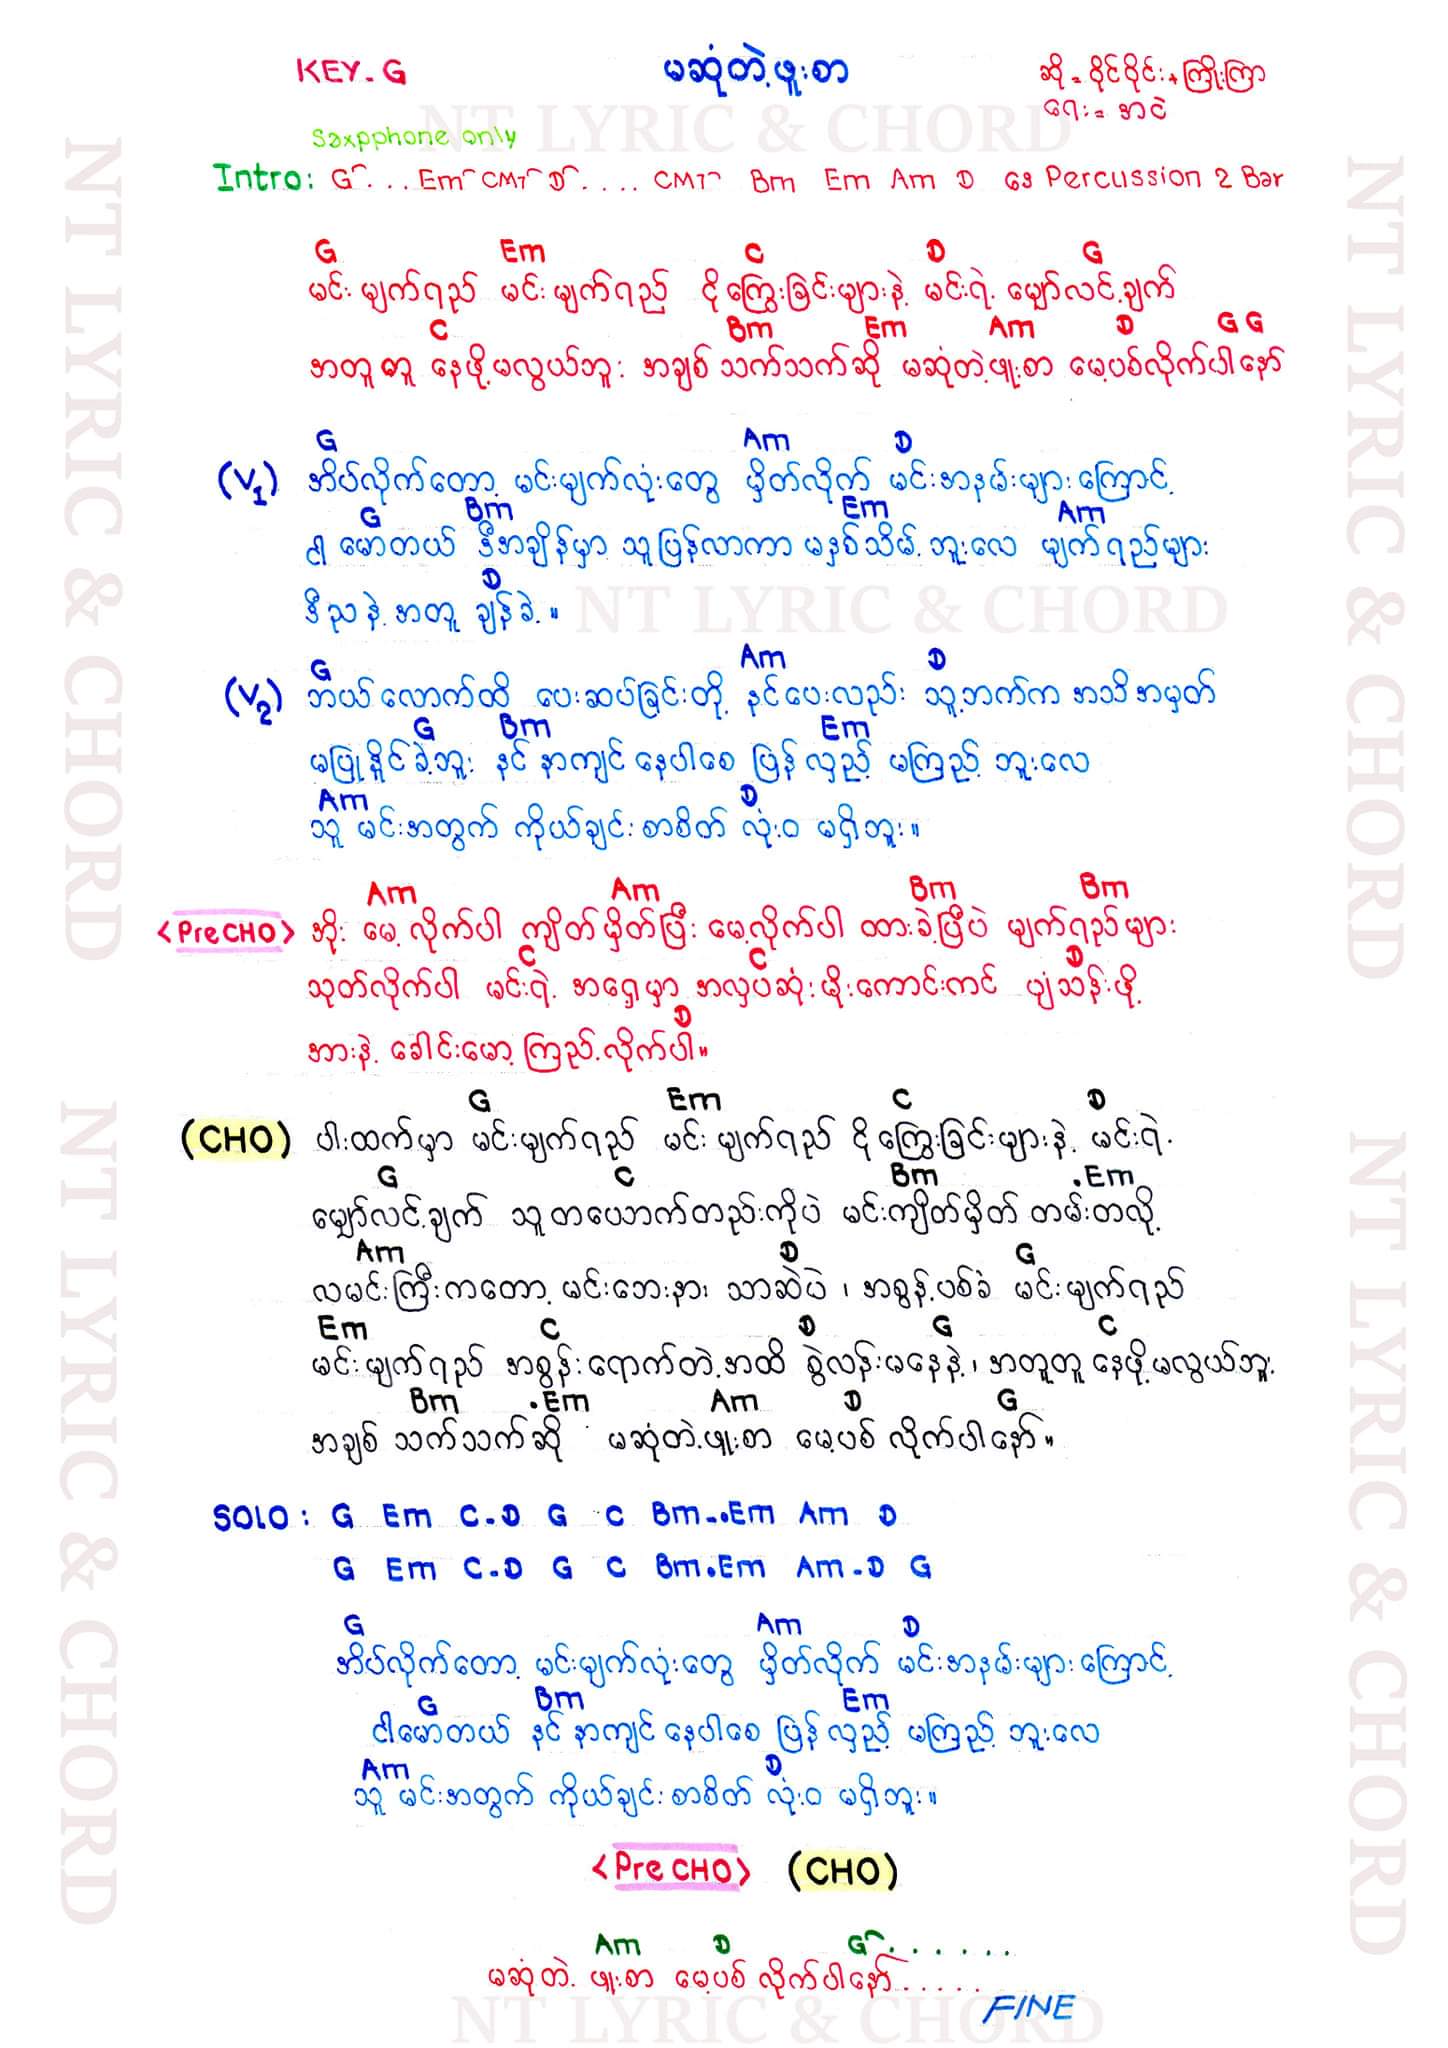 KEY-G
မဆုံတဲ့ဖူးစာ
ဆို = ဝိုင်ဝိုင်း + ကြိုးကြာ
ရေး = အငဲ
Saxpphone only
Intro: G... Em CM7 D.... CM7 Bm Em Am D G Percussion 2 Bar
G Em C D G
မင်းမျက်ရည် မင်းမျက်ရည် ငိုကြွေးခြင်းများနဲ့ မင်းရဲ့ မျှော်လင့်ချက်
C Bm Em Am D G G
အတူတူ နေဖို့မလွယ်ဘူး အချစ်သက်သက်ဆို မဆုံတဲ့ဖူးစာ မေ့ပစ်လိုက်ပါနော်
G Am D
(V1) အိပ်လိုက်တော့ မင်းမျက်လုံးတွေ မှိတ်လိုက် မင်းအနမ်းများကြောင့်
G Bm Em Am
ငါ မောတယ် ဒီအချိန်မှာ သူပြန်လာကာ မနှစ်သိမ့်ဘူးလေ မျက်ရည်များ
D
ဒီညနဲ့အတူ ချန်ခဲ့။
G Am D
(V2) ဘယ်လောက်ထိ ပေးဆပ်ခြင်းတို့ နင်ပေးလည်း သူ့ဘက်က အသိအမှတ်
G Bm Em
မပြုနိုင်ခဲ့ဘူး နင် နာကျင်နေပါစေ ပြန်လှည့် မကြည့်ဘူးလေ
Am D
သူ မင်းအတွက် ကိုယ်ချင်းစာစိတ် လုံးဝ မရှိဘူး။
Am Am Bm Bm
<PreCHO> အိုး မေ့လိုက်ပါ ကျိတ်မှိတ်ပြီး မေ့လိုက်ပါ ထားခဲ့ပြီပဲ မျက်ရည်များ
C C D
သုတ်လိုက်ပါ မင်းရဲ့ အရှေ့မှာ အလှပဆုံးမိုးကောင်းကင် ပျံသန်းဖို့
D
အားနဲ့ ခေါင်းမော့ကြည့်လိုက်ပါ။
G Em C D
(CHO) ပါးထက်မှာ မင်းမျက်ရည် မင်းမျက်ရည် ငိုကြွေးခြင်းများနဲ့ မင်းရဲ့
G C Bm .Em
မျှော်လင့်ချက် သူတယောက်တည်းကိုပဲ မင်းကျိတ်မှိတ် တမ်းတလို့
Am D G
လမင်းကြီးကတော့ မင်းဘေးနား သာဆဲပဲ၊ အစွန့်ပစ်ခံ မင်းမျက်ရည်
Em C D G C
မင်းမျက်ရည် အစွန်းရောက်တဲ့အထိ စွဲလန်းမနေနဲ့၊ အတူတူနေဖို့မလွယ်ဘူး
Bm .Em Am D G
အချစ် သက်သက်ဆို မဆုံတဲ့ဖူးစာ မေ့ပစ် လိုက်ပါနော်။
SOLO: G Em C-D G C Bm-.Em Am D
G Em C-D G C Bm.Em Am-D G
G Am D
အိပ်လိုက်တော့ မင်းမျက်လုံးတွေ မှိတ်လိုက် မင်းအနမ်းများကြောင့်
G Bm Em
ငါမောတယ် နင် နာကျင်နေပါစေ ပြန်လှည့် မကြည့်ဘူးလေ
Am D
သူ မင်းအတွက် ကိုယ်ချင်းစာစိတ် လုံးဝ မရှိဘူး။
<PreCHO> (CHO)
Am D G......
မဆုံတဲ့ ဖူးစာ မေ့ပစ် လိုက်ပါနော်.....
FINE
NT LYRIC & CHORD
NT LYRIC & CHORD
NT LYRIC & CHORD
NT LYRIC & CHORD
NT LYRIC & CHORD
NT LYRIC & CHORD
NT LYRIC & CHORD